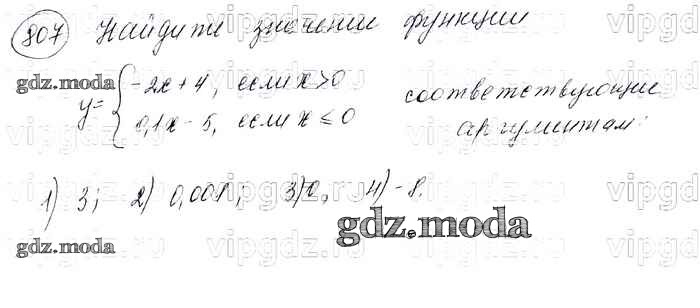 807 Найдите значении функции
y= { -2x+4, если x>0
0,1x-5, если x ≤ 0
соответствующие
аргументам:
1) 3; 2) 0,001; 3) 0, 4) -8.
gdz.moda
gdz.moda
gdz.moda
vipgdz.ru